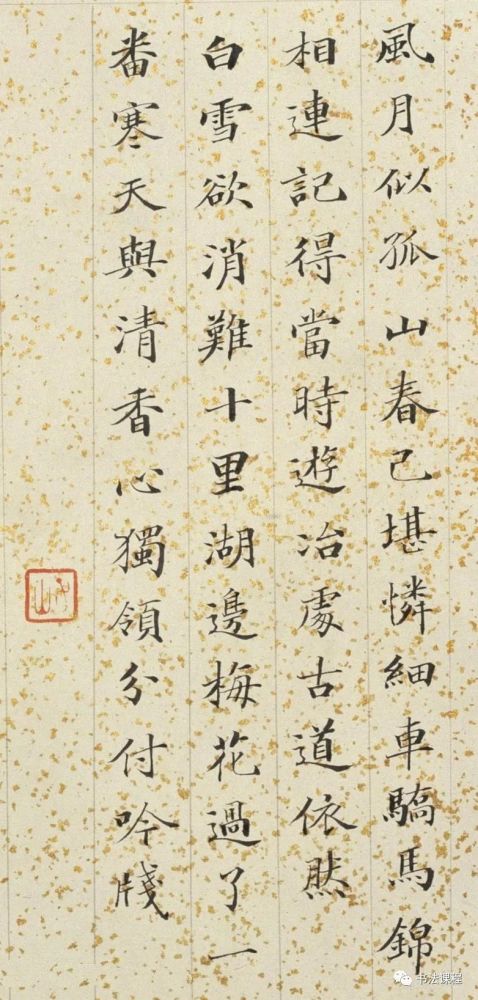 風月似孤山春己堪憐細車驕馬錦
相連記得當時遊冶處古道依然
白雪欲消難十里湖邊梅花過了一
番寒天與清香心獨領分付吟牋
书法课程